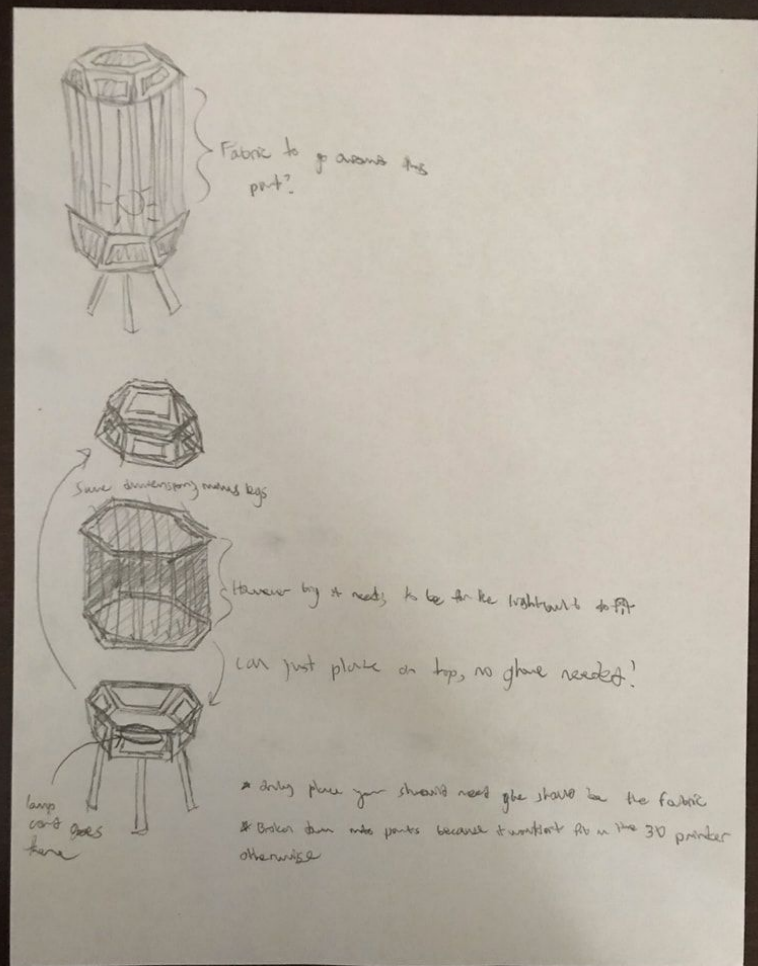 Fabric to go around this
part?
Same dimensions minus legs
However big it needs to be for the lightbulb to fit
Can just place on top, no glue needed!
lamp
cord goes
here
* Only place you should need glue should be the fabric
* Broken down into parts because it wouldn't fit in the 3D printer
otherwise